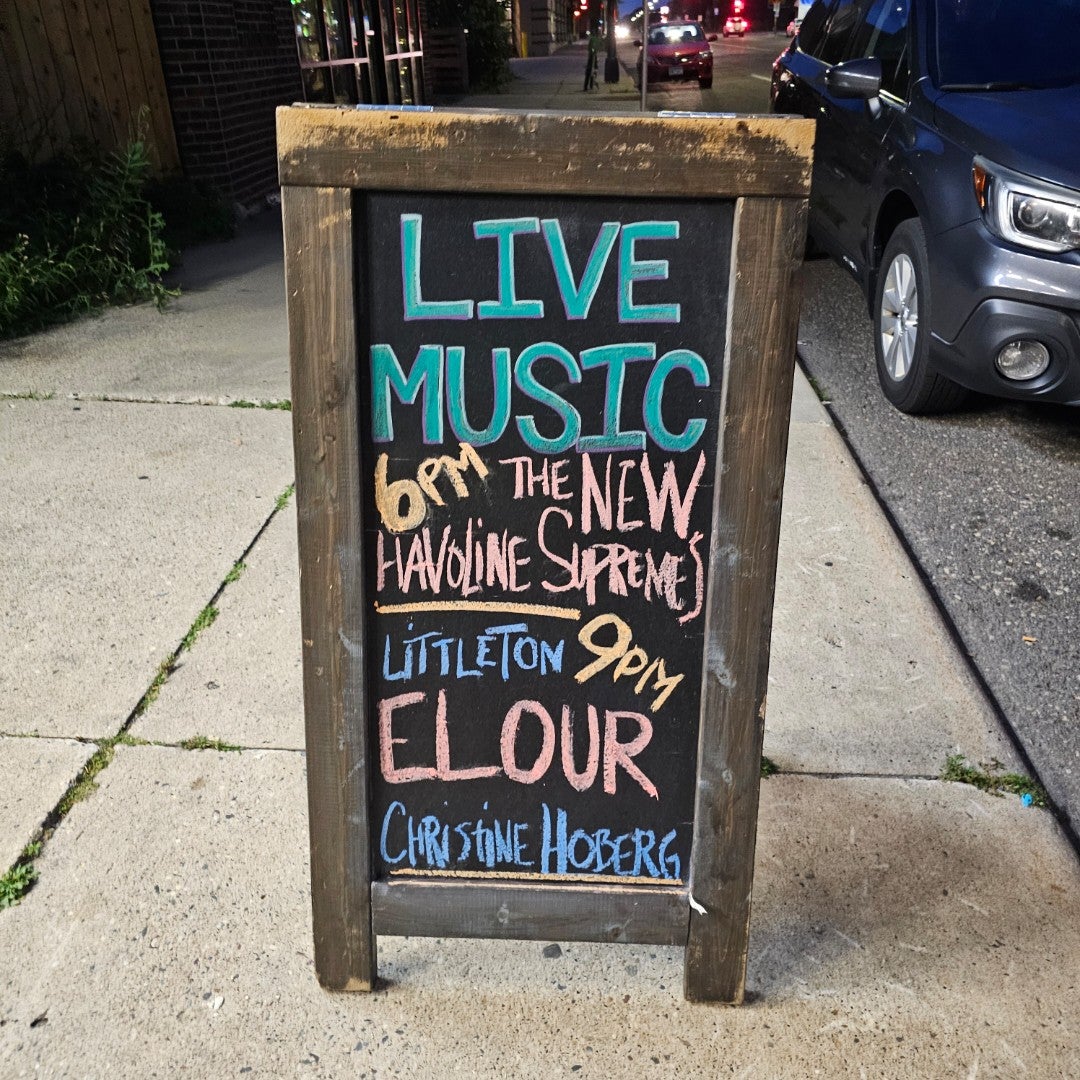 LIVE
MUSIC
6PM THE NEW
HAVOLINE SUPREME'S
LITTLETON 9PM
ELOUR
CHRISTINE HOBERG